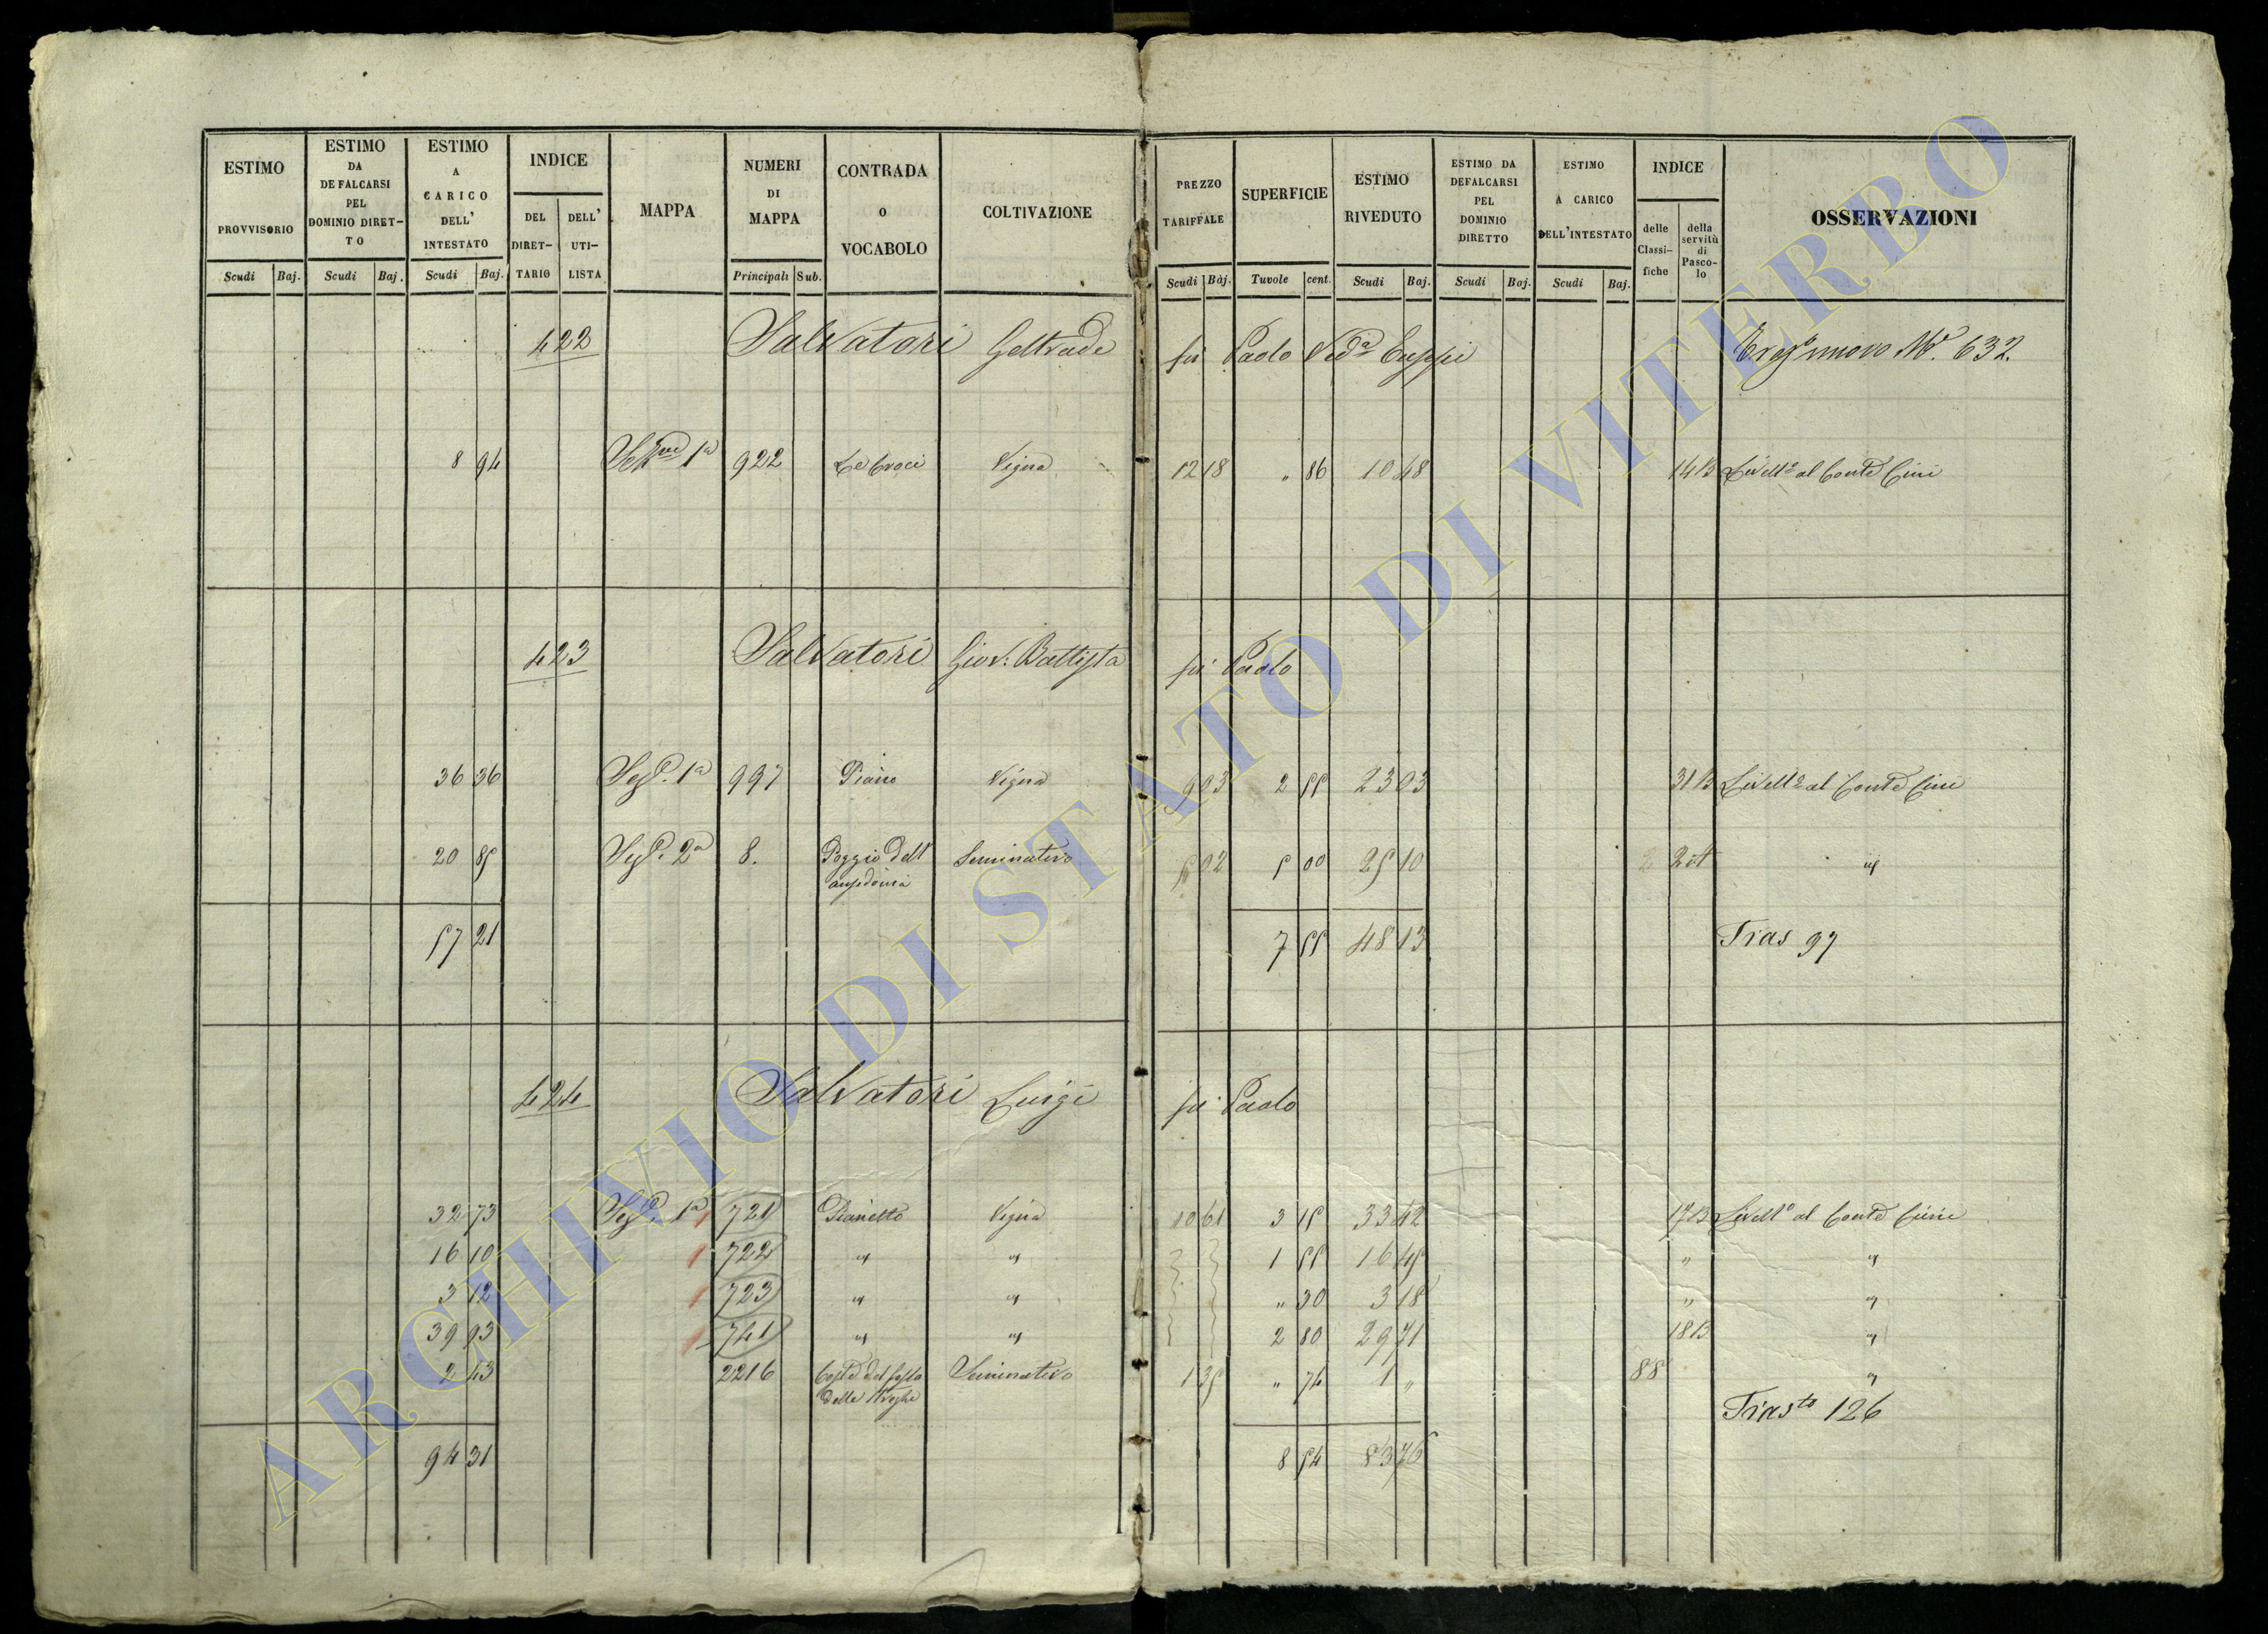 ESTIMO PROVVISORIO Scudi Baj.
ESTIMO DA DEFALCARSI PEL DOMINIO DIRET-TO Scudi Baj.
ESTIMO A CARICO DELL' INTESTATO Scudi Baj.
INDICE DEL DIRET-TARIO DELL' UTI-LISTA
MAPPA
NUMERI DI MAPPA Principali Sub.
CONTRADA O VOCABOLO
COLTIVAZIONE
PREZZO TARIFFALE Scudi Baj.
SUPERFICIE Tavole cent.
ESTIMO RIVEDUTO Scudi Baj.
ESTIMO DA DEFALCARSI PEL DOMINIO DIRETTO Scudi Baj.
ESTIMO A CARICO DELL'INTESTATO Scudi Baj.
INDICE delle Classi-fiche della servitù di Pasco-lo
OSSERVAZIONI
422 Salvatori Geltrude fù Paolo Ved.a 632.
8 94 1a 922 Le Croci Vigna 12 18 " 86 10 48 14 B Livell.o al Conte Cini
423 Salvatori Giov. Battista fù Paolo
36 36 Sez.e 1a 997 Piano Vigna 9 03 2 55 23 03 31 B Livell.o al Conte Cini
20 85 Sez.e 2a 8. Poggio dell' Seminativo 5 02 5 00 25 10 "
ansedonia
57 21 7 55 48 13 Tras 97
424 Salvatori Luigi fù Paolo
32 73 Sez.e 1a 721 Pianetto Vigna 10 61 3 15 33 42 17 B Livell.o al Conte Cini
16 10 722 " " 1 55 16 45 " "
3 12 723 " " " 30 3 18 " "
39 93 741 " " 2 80 29 71 18 B "
2 43 2216 Coste del fosso Seminativo 1 35 " 74 1 " 88 "
delle Streghe
Trasto 126
94 31 8 54 83 76
ARCHIVIO DI STATO DI VITERBO